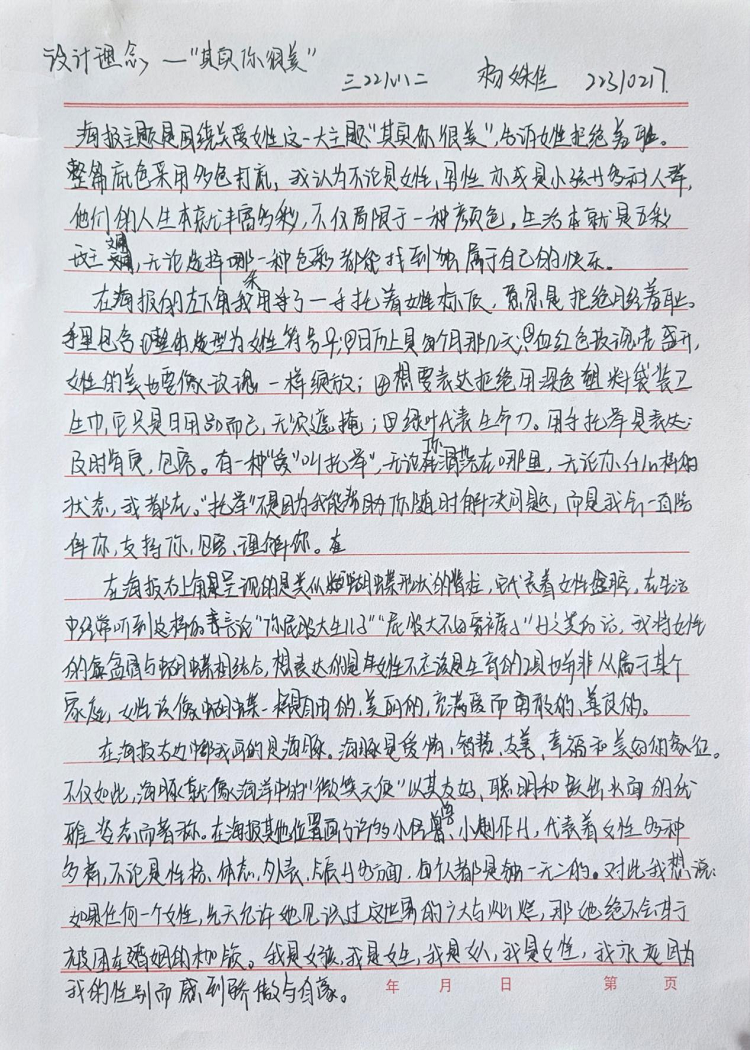 设计理念——“其实你很美”
三22 杨姝佳 22310217.
海报主题是围绕关爱女性这一大主题“其实你很美”,告诉女性拒绝羞耻。
整篇底色采用多色打底,我认为不论是女性,男性亦或是小孩等各种人群,
他们的人生本就丰富多彩,不仅局限于一种颜色。生活本就是五彩
无论选择哪一种色彩都能找到独属于自己的快乐。
在海报的左下角我采用等了一手托着女性标版,意思是拒绝月经羞耻。
手里包含①整体版型为女性符号;②日历上具每个月那几天;③血红色玫瑰花盛开,
女性的美也要像玫瑰一样绽放;④想要表达拒绝用深色塑料袋装卫
生巾,它只是日用品而已,无须遮掩;⑤绿叶代表生命力。用手托举是表达:
及时肯定,包容。有一种“爱”叫托举”,无论你在哪里,无论你什么样的
状态,我都在。“托举”不是因为我能帮助你随时解决问题,而是我会一直陪
伴你,支持你,包容、理解你。
在海报右上角呈现的是类似蝴蝶形状的脊柱,它代表着女性盆腔,在生活
中经常听到这样的言论“你屁股大生儿子”“屁股大不要裤子”什么类的话,我将女性
的盆骨与蝴蝶相结合,想表达的是女性不应该是生育的工具也并非从属于某个
家庭,女性该像蝴蝶一样是自由的,美丽的,充满爱而勇敢的,善良的。
在海报右边中部我画的是海豚。海豚是爱情,智慧,友善,幸福和美好的象征。
不仅如此,海豚就像海洋中的“微笑天使”以其友好、聪明和跃出水面的优
雅姿态而著称。在海报其他位置画了许多小怪兽、小制作等,代表着女性多种
多样,不论是性格、体态,外表,版等方面,每个人都是独一无二的。对此我想说:
如果任何一个女性,先天允许她见识过这世界的广大与灿烂,那她绝不会甘于
被困在婚姻的枷锁。我是女孩,我是女生,我是女人,我是女性,我永远因为
我的性别而感到骄傲与自豪。
年 月 日 第 页